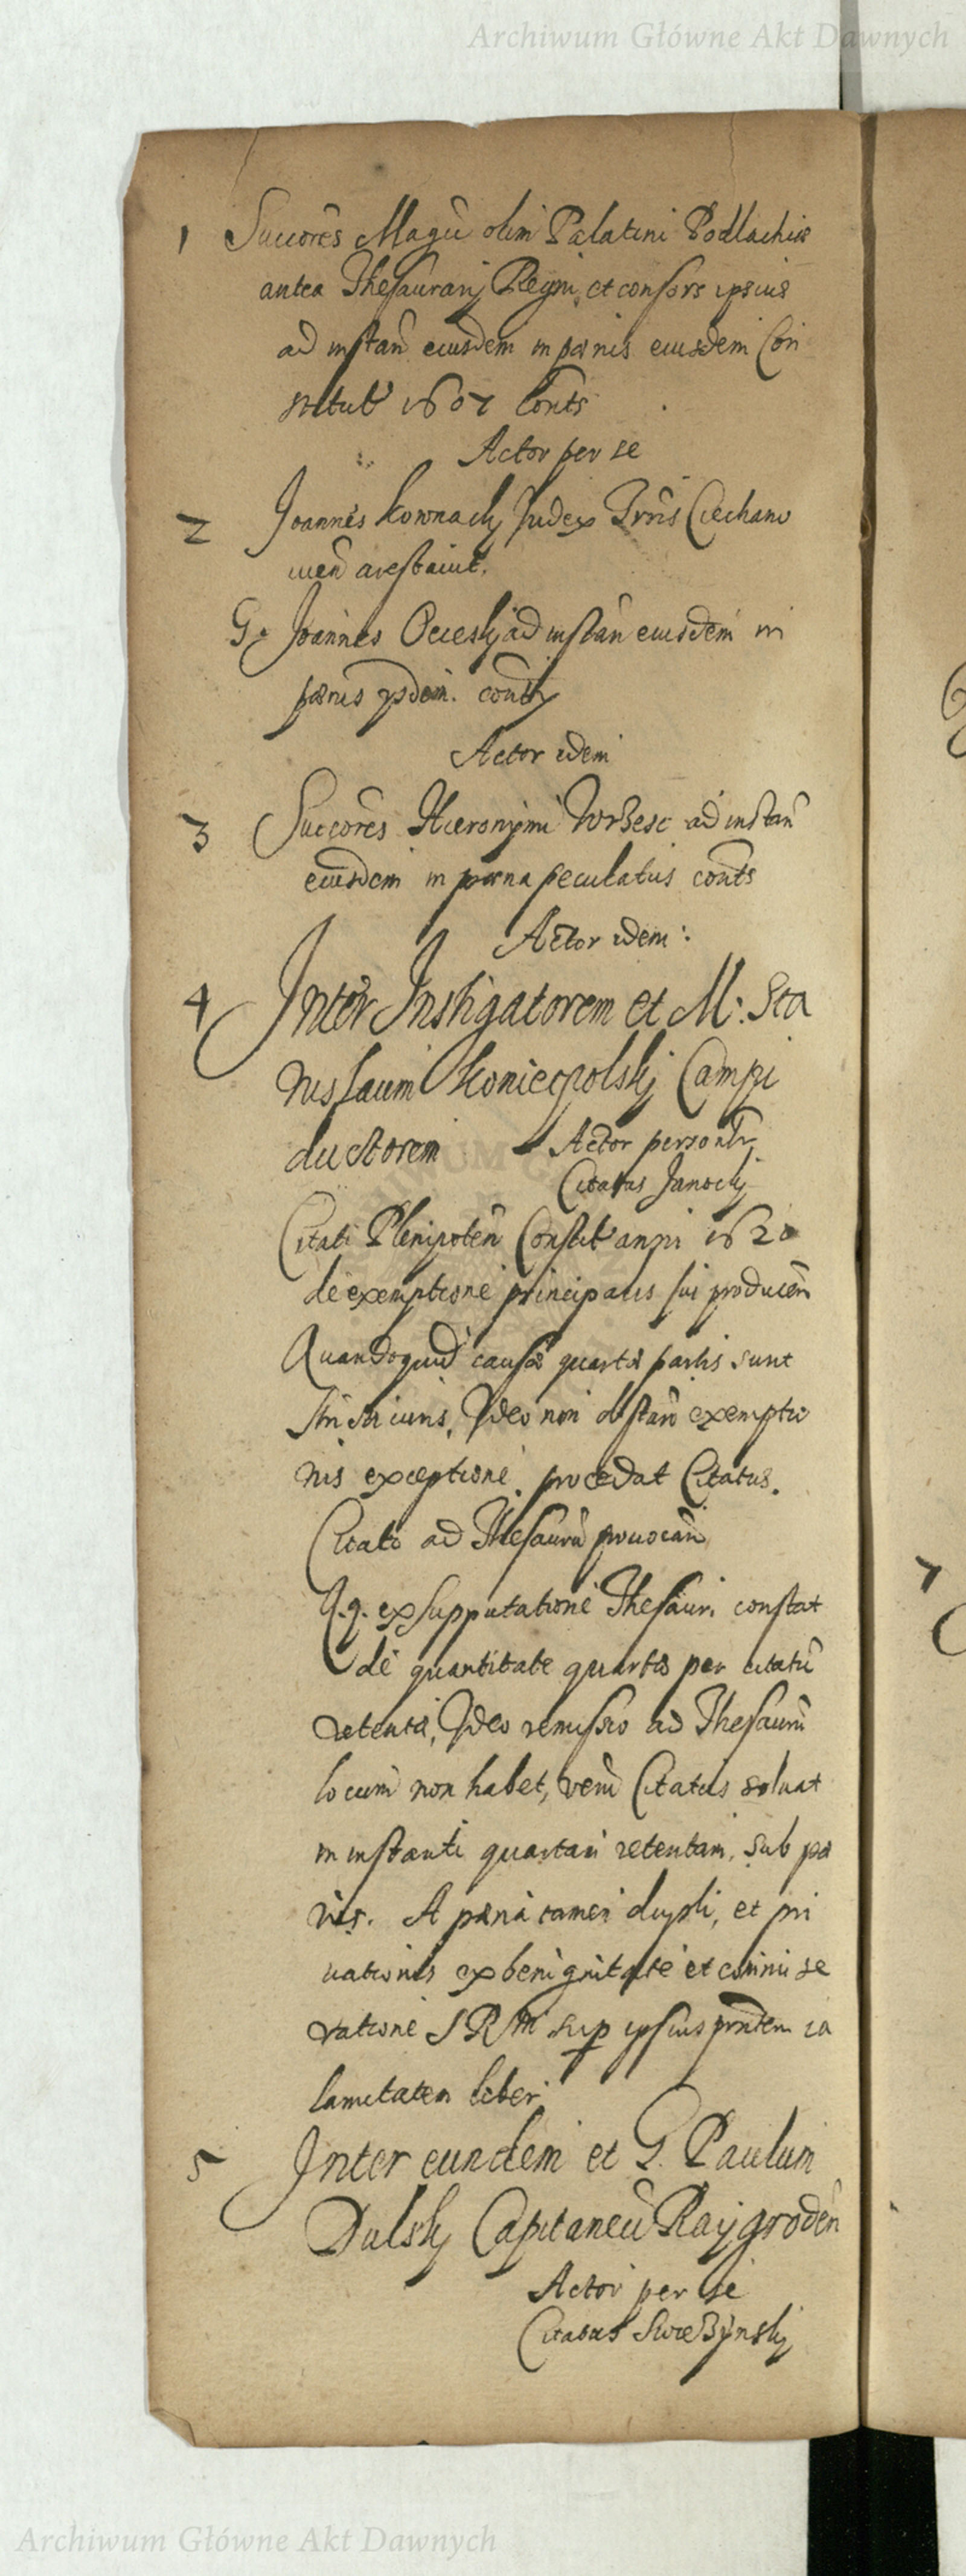 Archiwum Główne Akt Dawnych
1 Succores Magci olim Palatini Podlachiæ
antea Thesaurarij Regni, et consors ipsius
ad instan eiusdem in pœnis eiusdem Con
stitut 1607 conts
Actor per se
2 Joannes Kownacky Judex Trris Ciechano
uien arestauit.
G. Joannes Ocieskj ad instan eiusdem in
pœnis ysdem. cont
Actor idem
3 Succores Hieronymi ad instan
eiusdem in pœna peculatus conts
Actor idem:
4 Inter Instigatorem et M: Sta
nislaum Koniecpolskj Campi
ductorem Actor personlr
Citatus Janockj
Citati Plenipoten Constit anni 1620
de exemptione principalis sui producen
Quandoquid causæ quartæ partis sunt
stricti iuris, Ideo non obstan exemptio
nis exceptione procedat Citatus.
Citato ad Thesauru prouocan
Q.q. ex supputatione Thesauri constat
de quantitate quartæ per citatu
retentæ, Ideo remissio ad Thesauru
locum non habet, veru Citatus soluat
in instanti quartam retentam, sub pœ
nis. A pœna tamen dupli, et pri
uationis ex benignitate et commise
ratione S R M sup ipsius prntem ca
lamitatem liber
5 Inter eundem et G. Paulum
Dulskj Capitaneu Raygroden
Actor per se
Citatus
7
Archiwum Główne Akt Dawnych